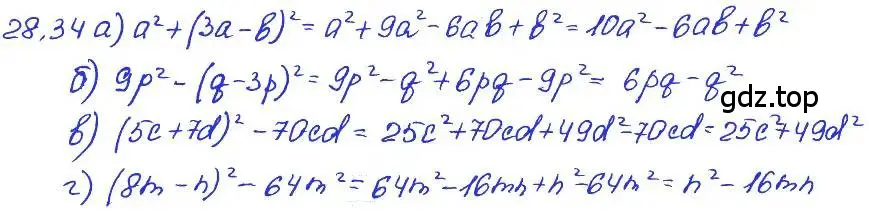 28.34 а) a² + (3a - b)² = a² + 9a² - 6ab + b² = 10a² - 6ab + b²
б) 9p² - (q - 3p)² = 9p² - q² + 6pq - 9p² = 6pq - q²
gdz.top
в) (5c + 7d)² - 70cd = 25c² + 70cd + 49d² - 70cd = 25c² + 49d²
г) (8m - n)² - 64m² = 64m² - 16mn + n² - 64m² = n² - 16mn